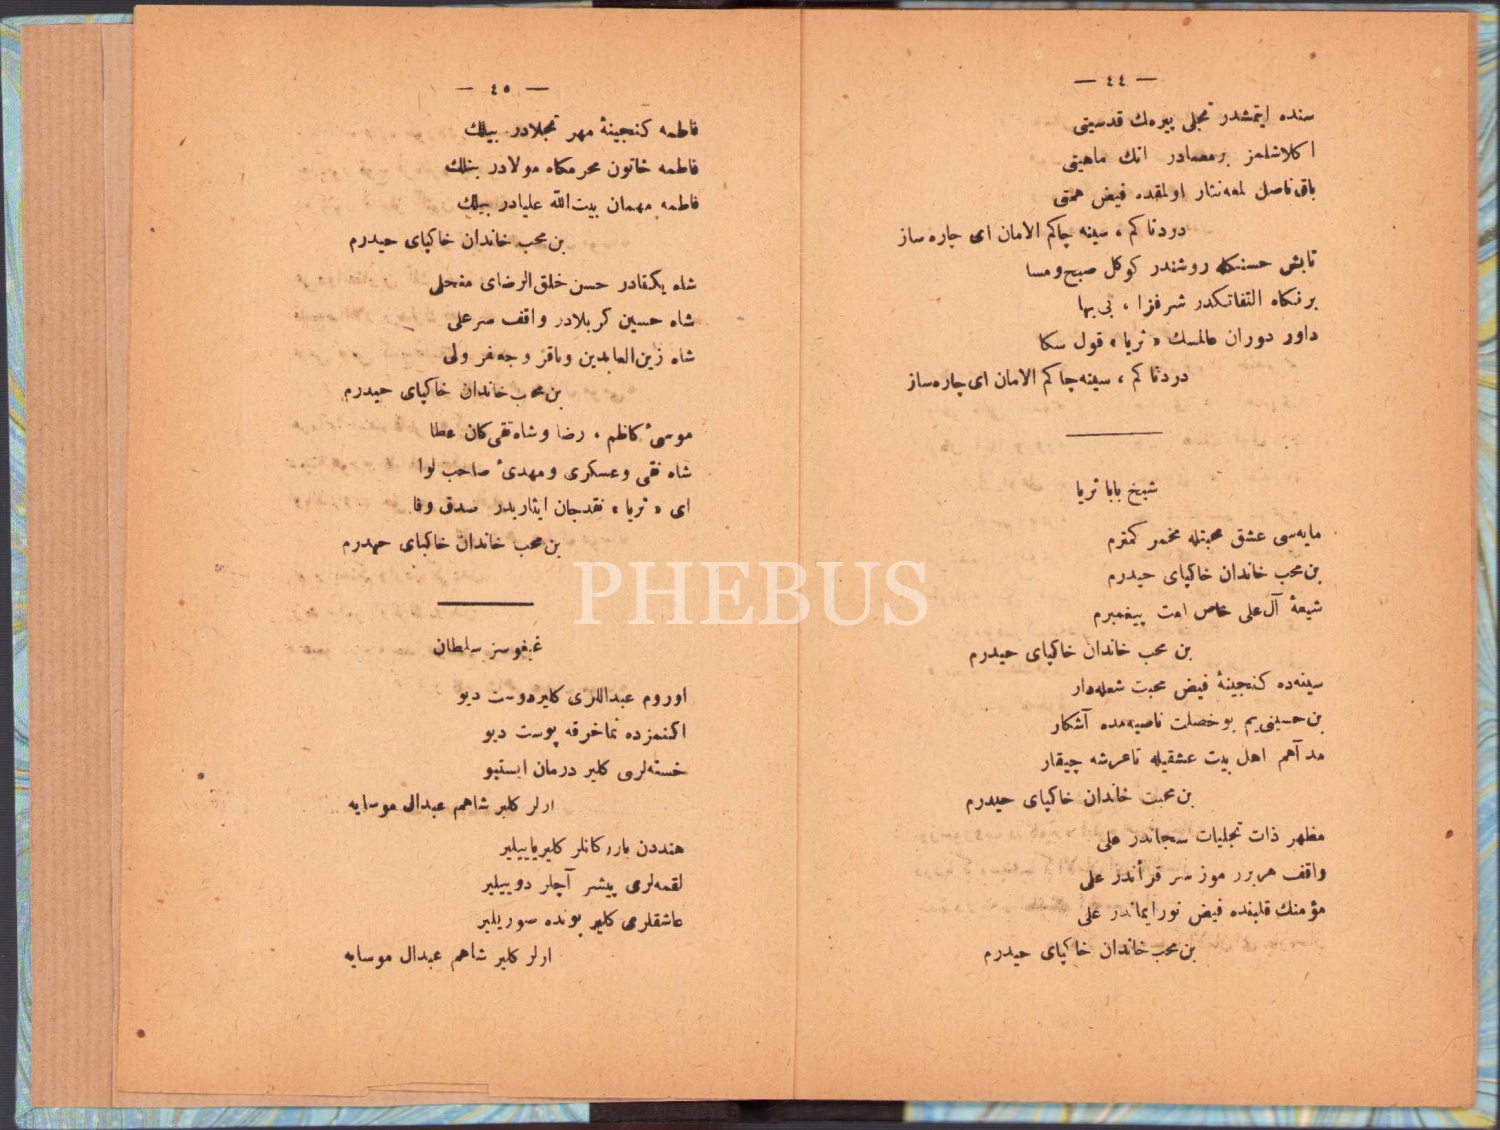 — ٤٤ —
سنده ايتمشدر تجلی پيرەك قدسيتی
اكلاشلمز برمصادر انك ماهيتی
باقی ناصل لمعەنثار اولمقده فيض همتی
دردناكم ، سينه چاكم الامان ای چاره ساز
تابش حسنكله روشندر كوكل صبح ومسا
برنكاه التفاتكدر شرفزا ، بی بها
داور دوران عالمسك « ثريا » قول سكا
دردناكم ، سينه چاكم الامان ای چاره ساز
شيخ بابا ثريا
مايەسی عشق محبتله مخمر كمترم
بن محب خاندان خاكپای حيدرم
شيعهٔ آل علی خاص امت پيغمبرم
بن محب خاندان خاكپای حيدرم
سينەده كنجينهٔ فيض محبت شعلەدار
بن حسينی يم بوخصلت ناصيەمده آشكار
مد آهم اهل بيت عشقيله تاعرشه چيقار
بن محبت خاندان خاكپای حيدرم
مظهر ذات تجليات سبحاندر علی
واقف هر برر موز سر قرأندر علی
مؤمنك قلبنده فيض نور ايماندر علی
بن محب خاندان خاكپای حيدرم
— ٤٥ —
فاطمه كنجينهٔ مهر تجلادر بيلك
فاطمه خاتون محرمكاه مولادر بيلك
فاطمه مهمان بيت الله عليادر بيلك
بن محب خاندان خاكپای حيدرم
شاه يكتادر حسن خلق الرضای منجلی
شاه حسين كربلادر واقف سر علی
شاه زين العابدين وباقر وجعفر ولی
بن محب خاندان خاكپای حيدرم
موسیٔ كاظم ، رضا وشاه تقی كان عطا
شاه نقی وعسكری ومهدیٔ صاحب لوا
ای « ثريا » نقدجان ايثاريدر صدق وفا
بن محب خاندان خاكپای حيدرم
غيغوسز سلطان
اوروم عبداللری كلير دوست ديو
اكنمزده نماخرقه پوست ديو
خستەلری كلير درمان ايستيو
ارلر كلير شاهم عبدال موسايه
هنددن بازركانلر كلير ياييلير
لقمەلری پيشر آچلر دوييلير
عاشقلری كلير بونده صوريلير
ارلر كلير شاهم عبدال موسايه
PHEBUS